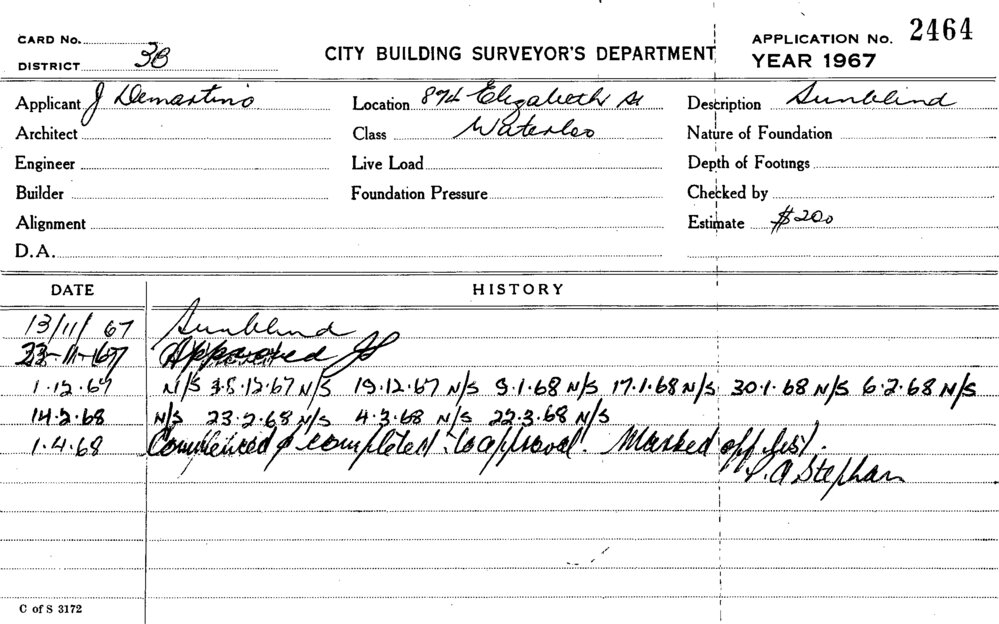 CARD No.
DISTRICT 3B
CITY BUILDING SURVEYOR'S DEPARTMENT
APPLICATION No. 2464
YEAR 1967
Applicant J Demartino
Location Elizabeth St
Description Sunblind
Architect
Class Waterloo
Nature of Foundation
Engineer
Live Load
Depth of Footings
Builder
Foundation Pressure
Checked by
Alignment
Estimate $200
D.A.
DATE
HISTORY
13/11/67 Sunblind
23-11-67 Approved
1.12.67 N/S 8.12.67 N/S 19.12.67 N/S 9.1.68 N/S 17.1.68 N/S 30.1.68 N/S 6.2.68 N/S
14.2.68 N/S 23.2.68 N/S 4.3.68 N/S 22.3.68 N/S
1.4.68 Commenced & completed to approval. Marked off list.
Stephan
C of S 3172